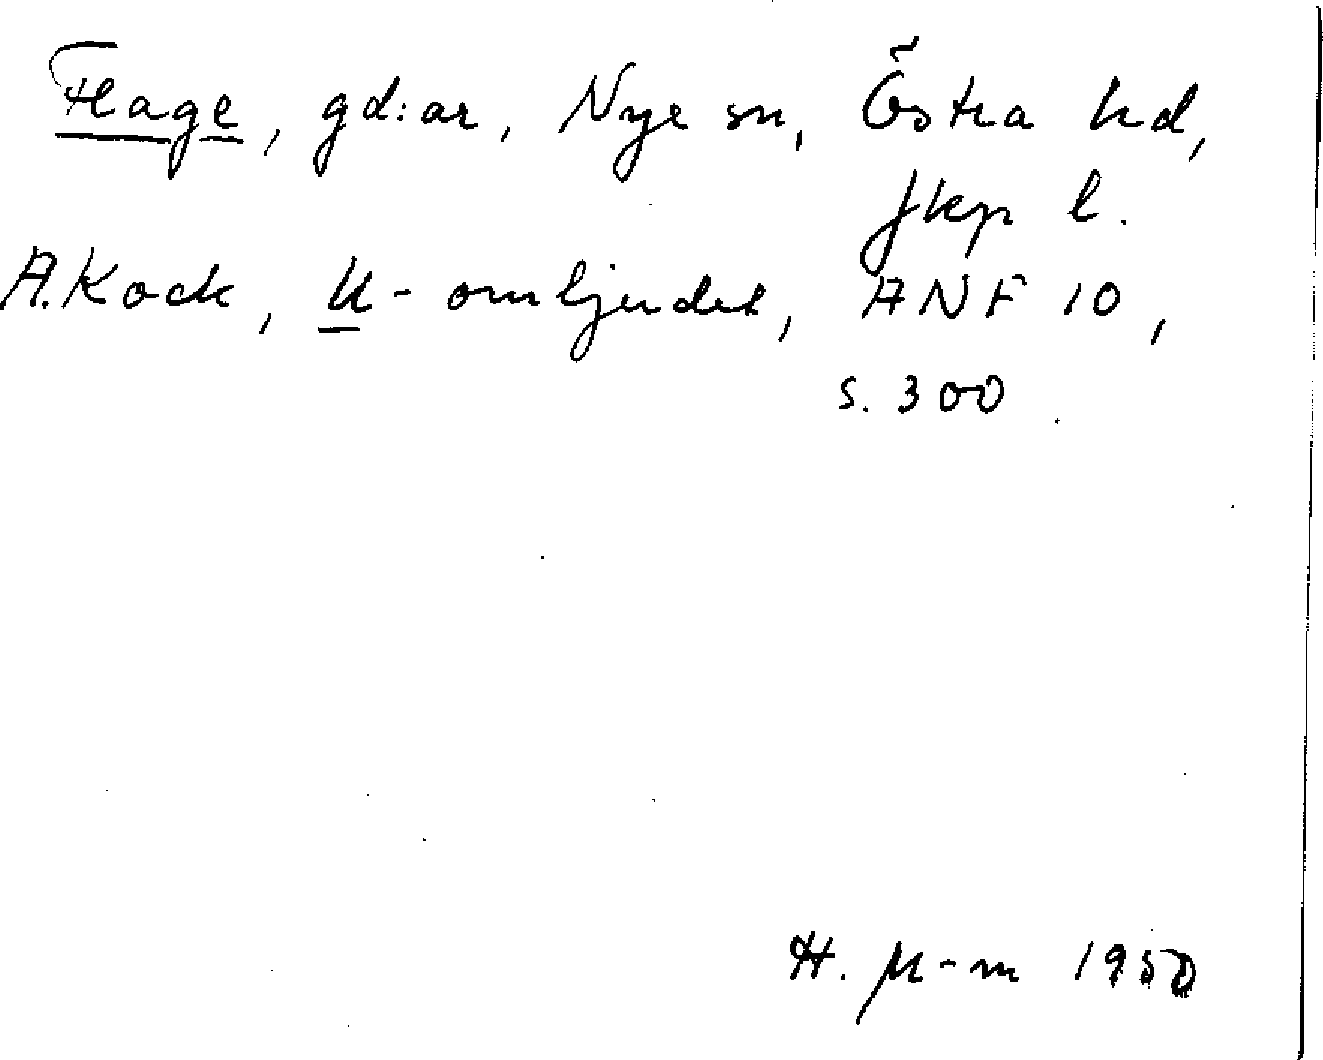 Flage, gd:ar, Nye sn, Östra hd,
Jkp l.
A. Kock, U-omljudet, ANF 10,
s. 300
H. M-m 1950